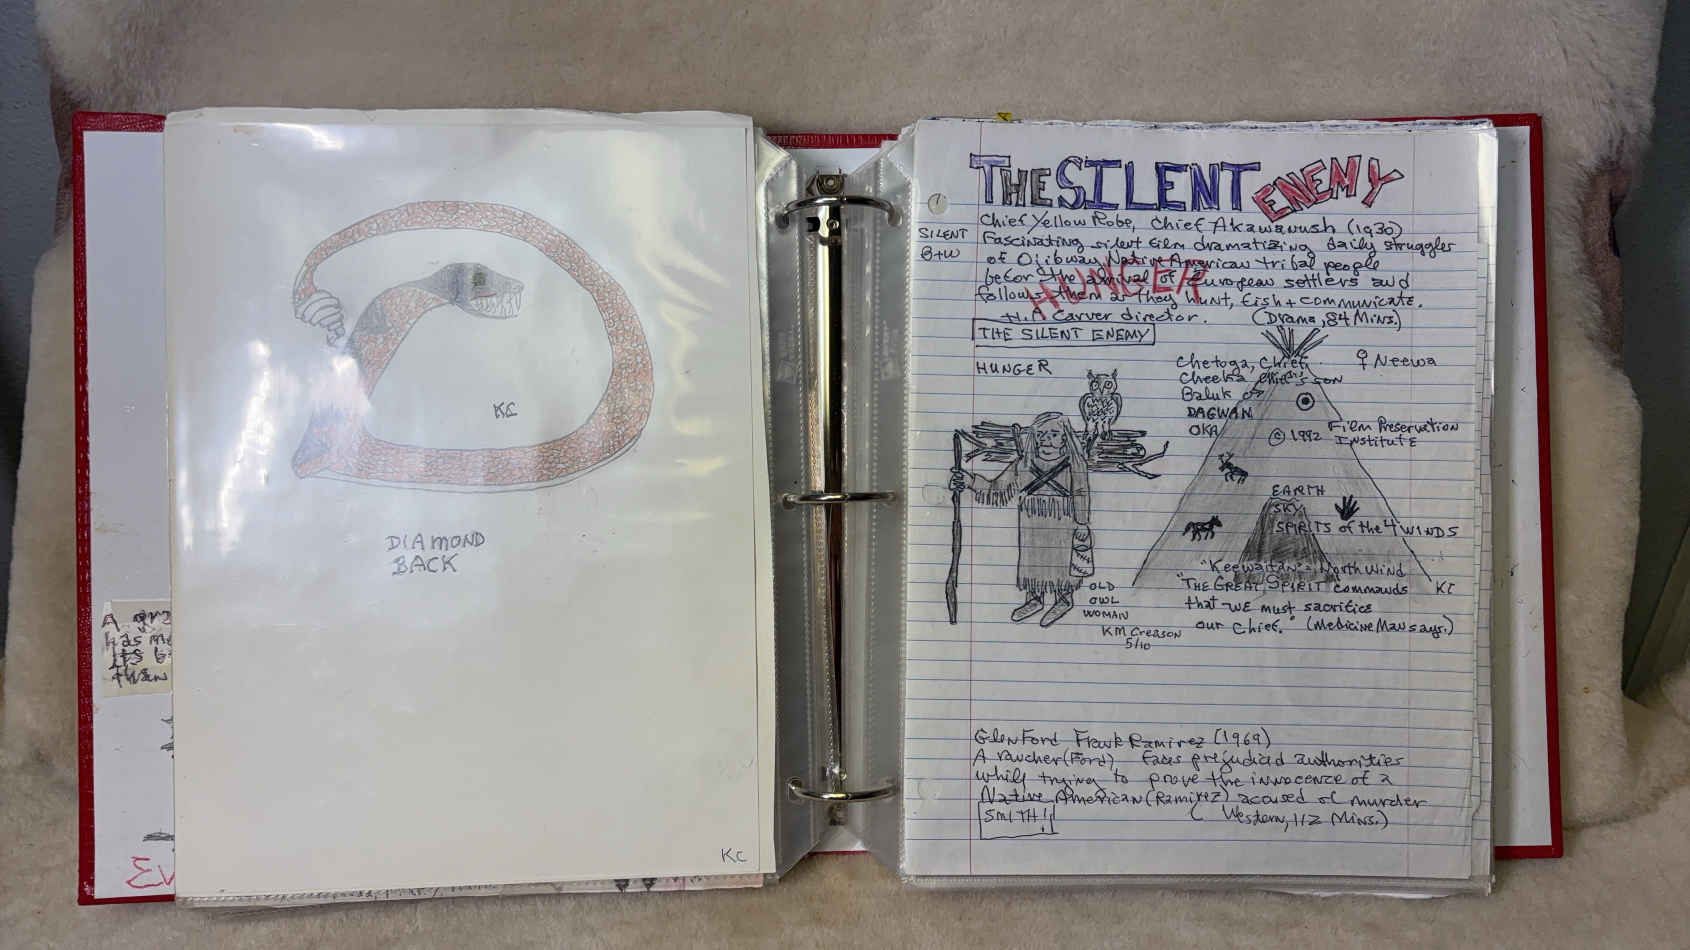 KC
DIAMOND
BACK
KC
A
has
its
than
THE SILENT ENEMY
Chief Yellow Robe, Chief Akawanush (1930)
SILENT
B+W
Fascinating silent film dramatizing daily struggles
of Ojibway Native American tribal people
befor the arrival of European settlers and
follows them as they hunt, fish + communicate.
HUNGER
H.P. Carver director. (Drama, 84 Mins.)
THE SILENT ENEMY
HUNGER
Chetoga, Chief,
Cheeka Chief's son
Baluk ♂
DAGWAN
OKA
♀ Neewa
© 1992 Film Preservation
Institute
EARTH
SKY
SPIRITS of the 4 WINDS
"Keewaitan" = North wind
"THE GREAT SPIRIT commands
that we must sacrifice
our Chief." (Medicine Man says.)
KC
OLD
OWL
WOMAN
KM Creason
5/10
Glen Ford Frank Ramirez (1969)
A rancher (Ford), faces prejudiced authorities
while trying to prove the innocence of a
Native American (Ramirez) accused of murder
SMITH!
(Western, 112 Mins.)